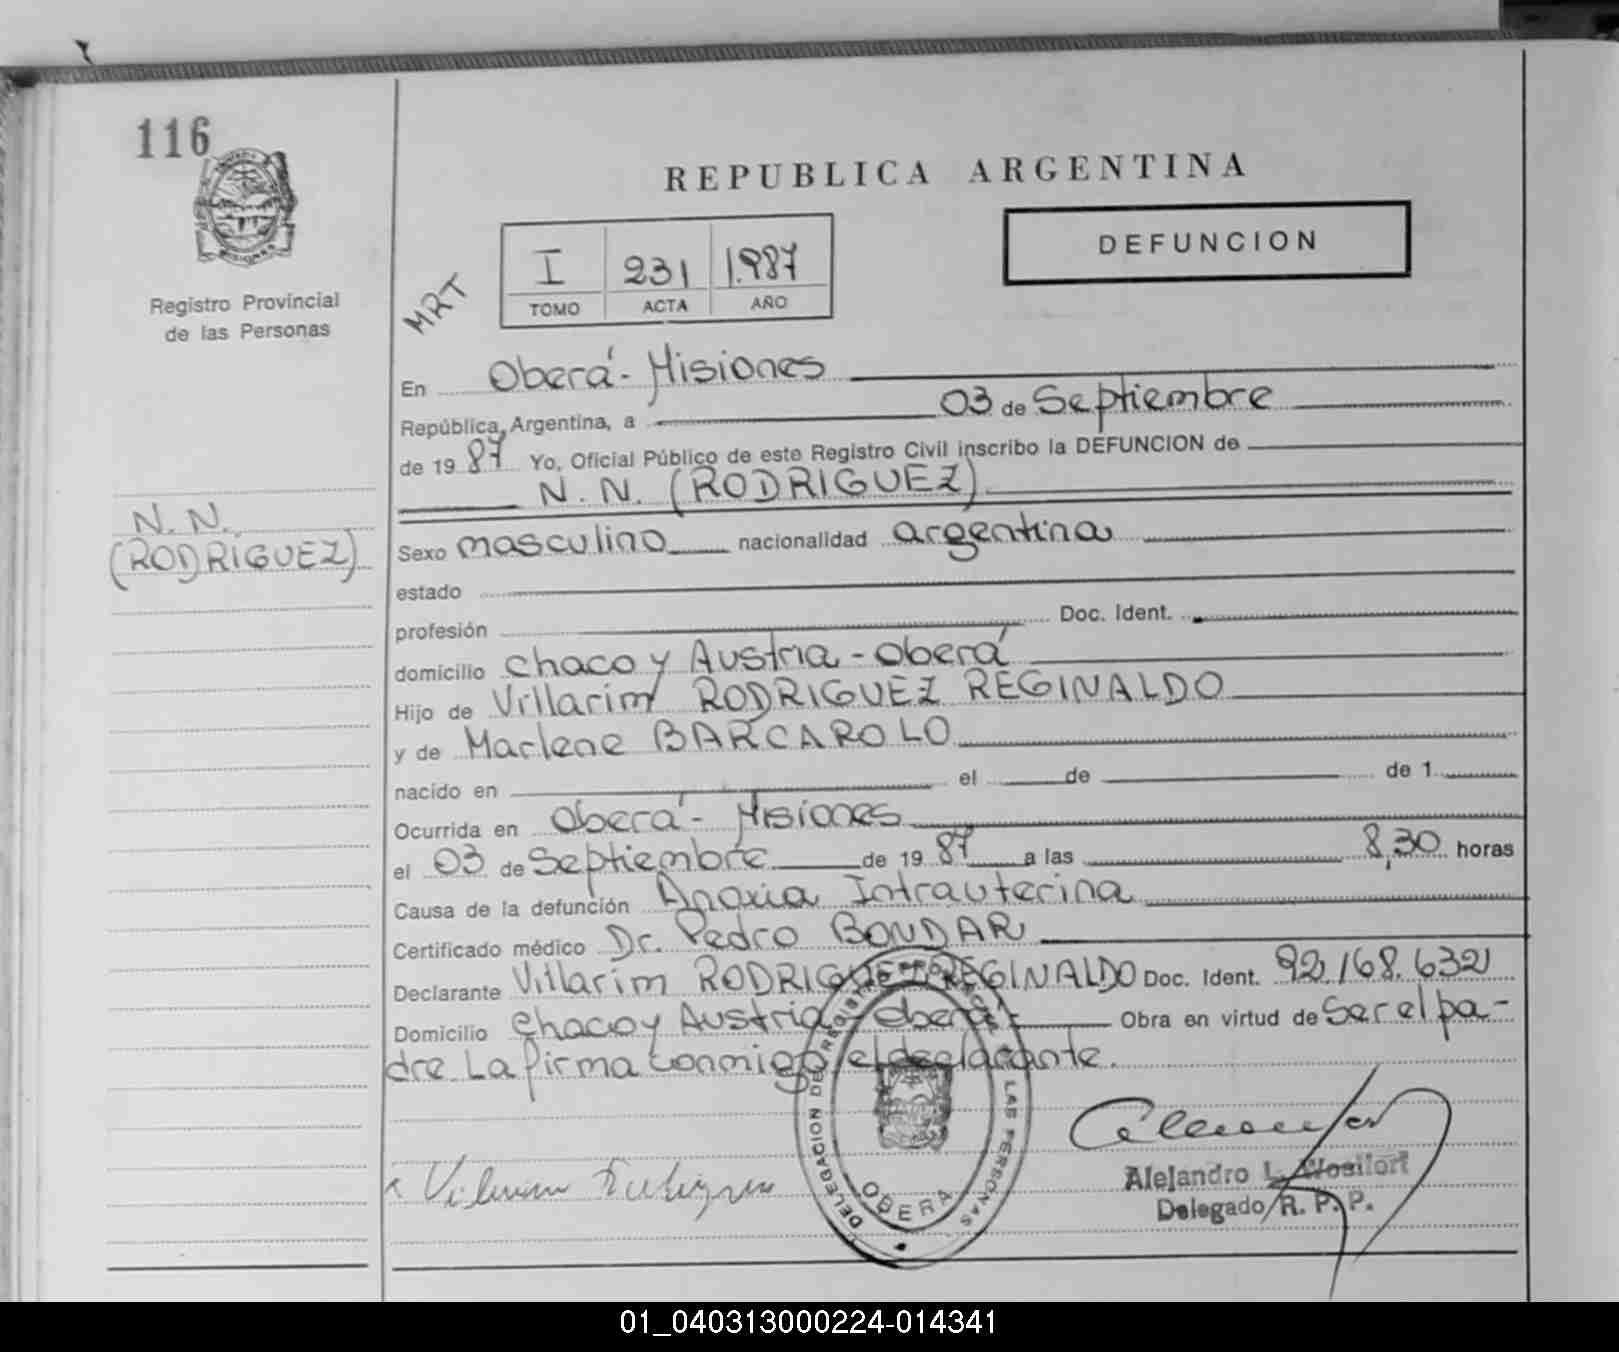 116
REPUBLICA ARGENTINA
DEFUNCION
Registro Provincial
de las Personas
MRT
I 231 1.987
TOMO ACTA AÑO
En Oberá - Misiones
República, Argentina, a 03 de Septiembre
de 19 87 Yo, Oficial Público de este Registro Civil inscribo la DEFUNCION de
N. N. (RODRIGUEZ)
N. N.
(RODRIGUEZ)
Sexo masculino nacionalidad argentina
estado
profesión Doc. Ident.
domicilio Chaco y Austria - Oberá
Hijo de Villarim RODRIGUEZ REGINALDO
y de Marlene BARCAROLO
nacido en el de de 1
Ocurrida en Oberá - Misiones
el 03 de Septiembre de 19 87 a las 8,30 horas
Causa de la defunción Anoxia Intrauterina
Certificado médico Dr. Pedro BONDAR
Declarante Villarim RODRIGUEZ REGINALDO Doc. Ident. 92.168.632
Domicilio Chaco y Austria - Oberá Obra en virtud de ser el pa-
dre La firma conmigo el declarante.
DELEGACION DE REGISTRO LAS PERSONAS
OBERA
Alejandro L.
Delegado R. P. P.
01_040313000224-014341